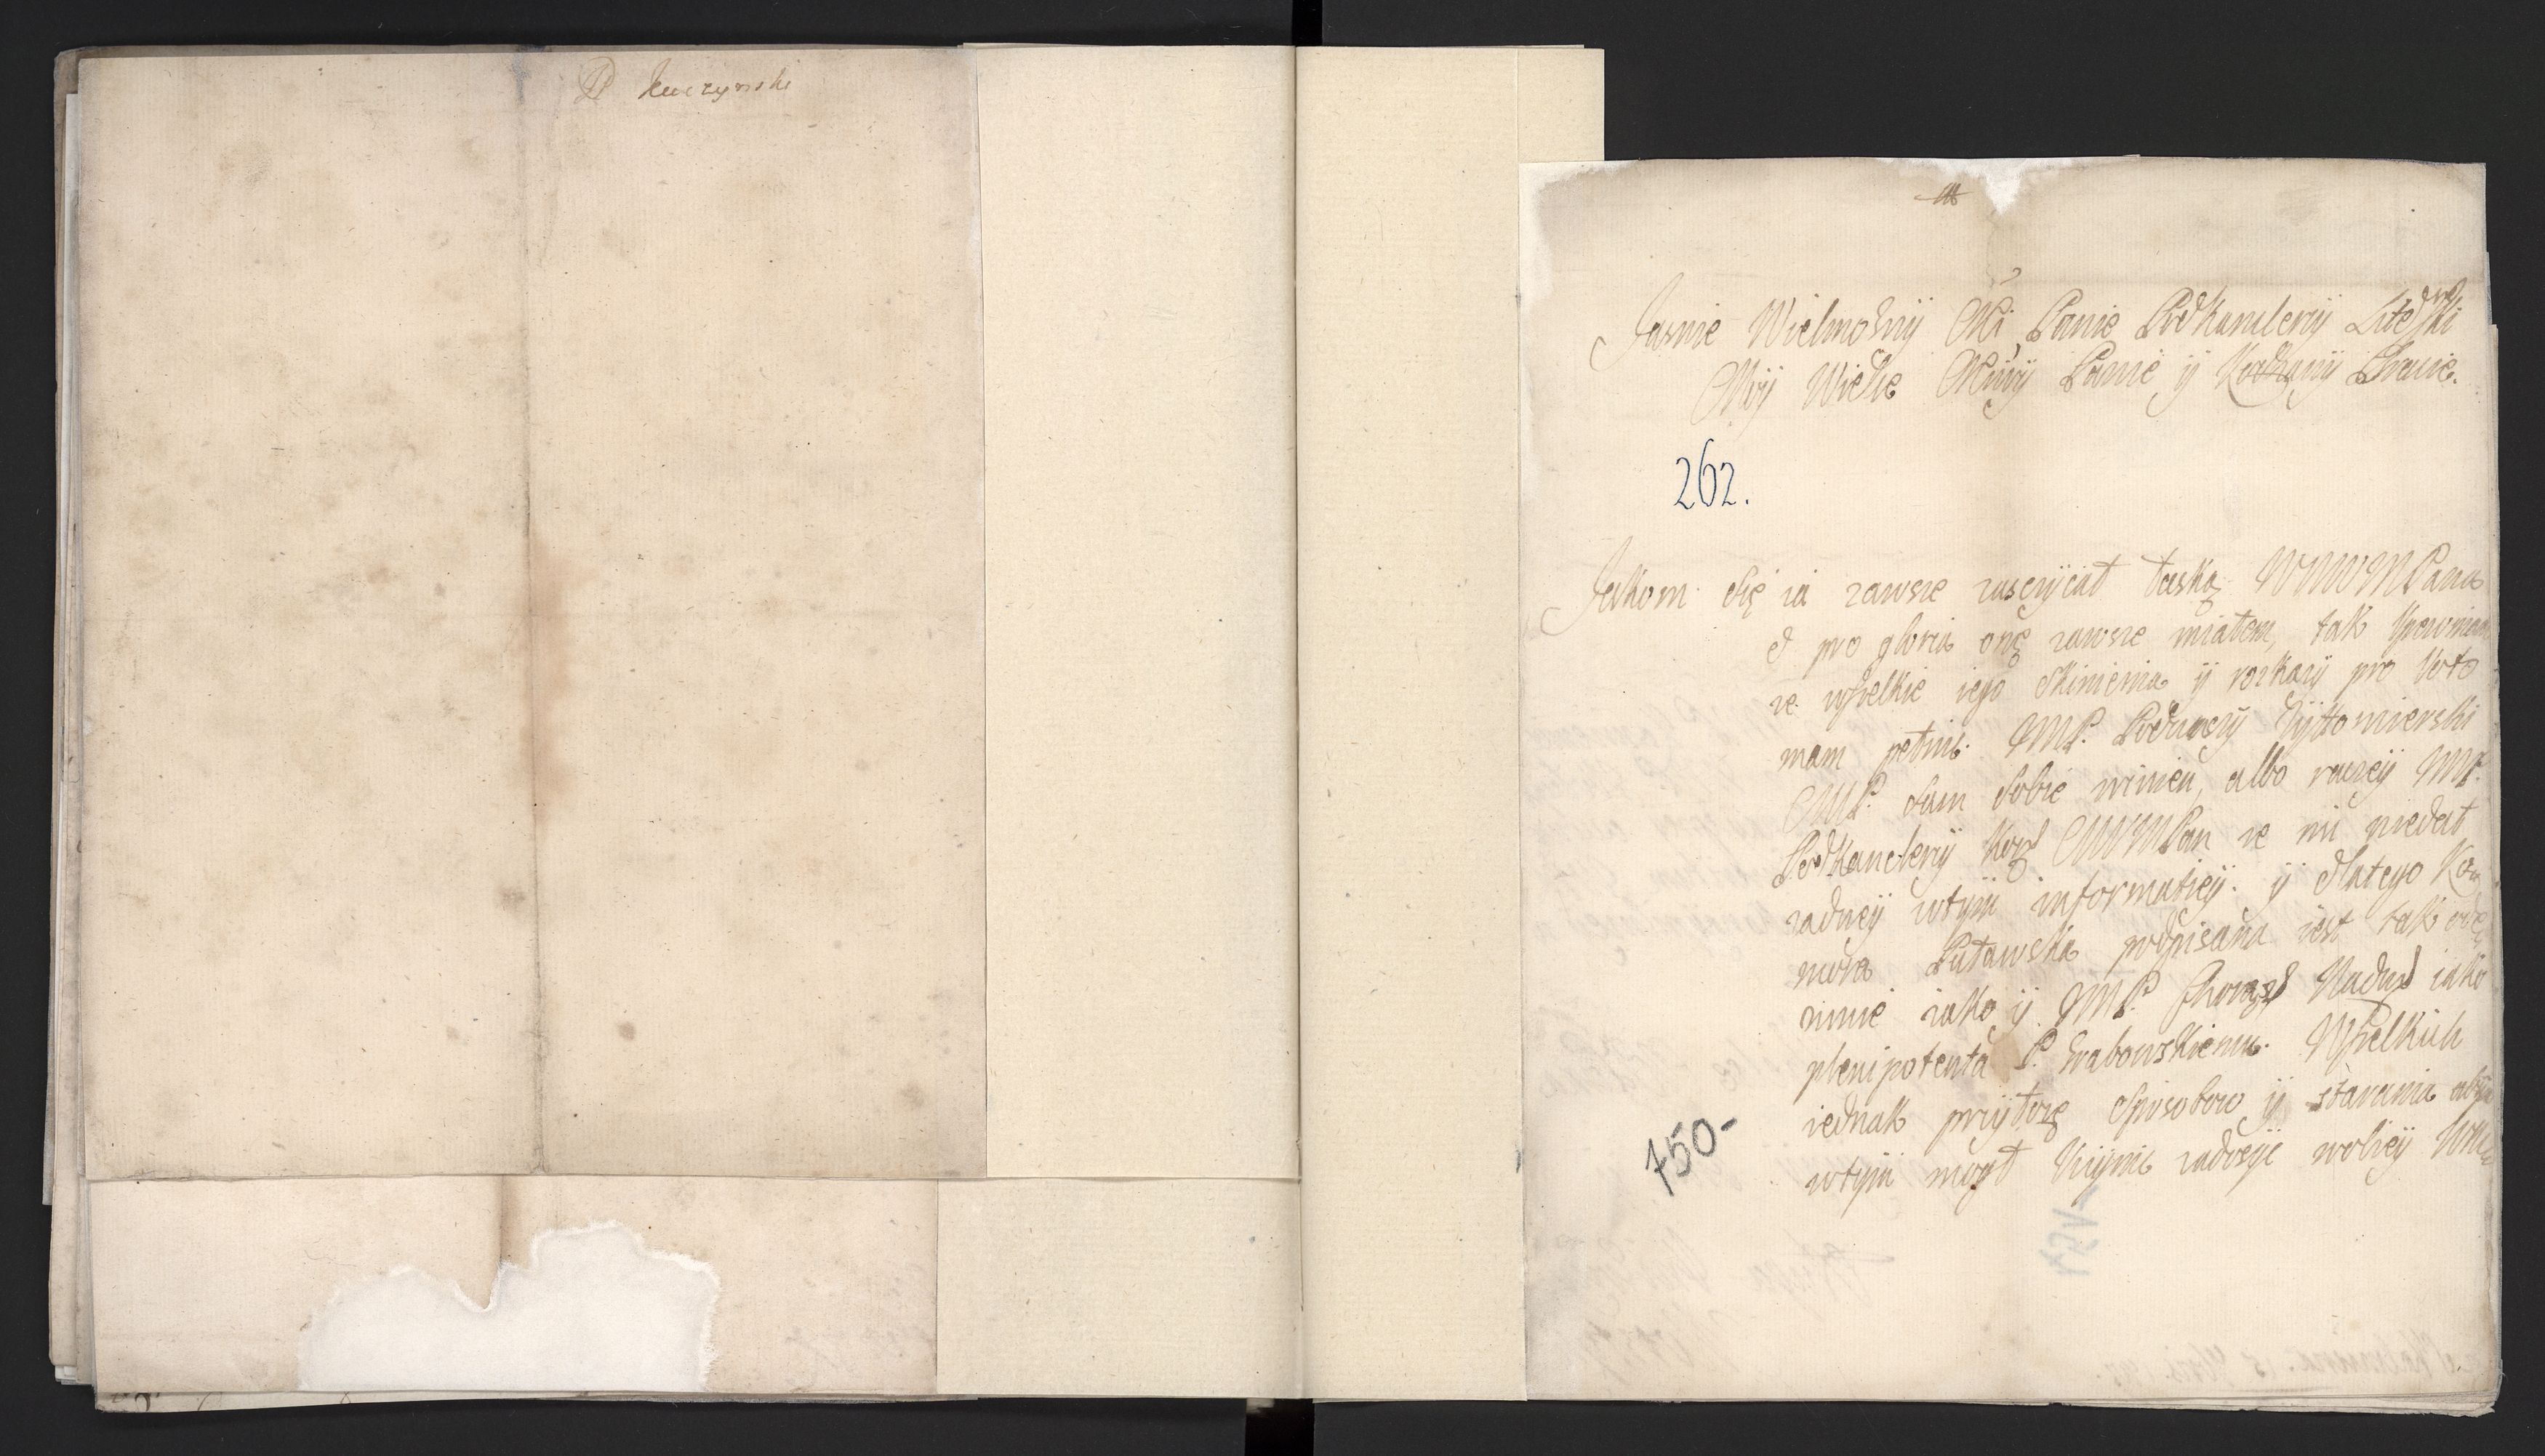 P Kuczynski
Jasnie Wielmożny Mći Panie Podkanclerzy Lite
Moy Wielce Mćiwy Panie y Kochany Bracie.
262.
Jakom się ia zawsze zasczycał łaską WMWMPana
pro gloria onę zawsze miałem, tak
ze wszelkie iego skinienia y rozkazy pro Voto
mam pełnic. JMP. Podczaszy Zyttomierski
MMP. sam sobie winien, albo raczey JMP.
Podkanclerzy Kor MWMPan ze mi niedał
zadney wtym informatiey. y dlatego Ko
mora Puławska podpisana iest tak ode
mnie iako y JMP. iako
plenipotenta P. Grabowskiemu. Wszelkich
iednak przytozę sposobow y starania abym
wtym mogł Uczynic zadosyć woliey
750-